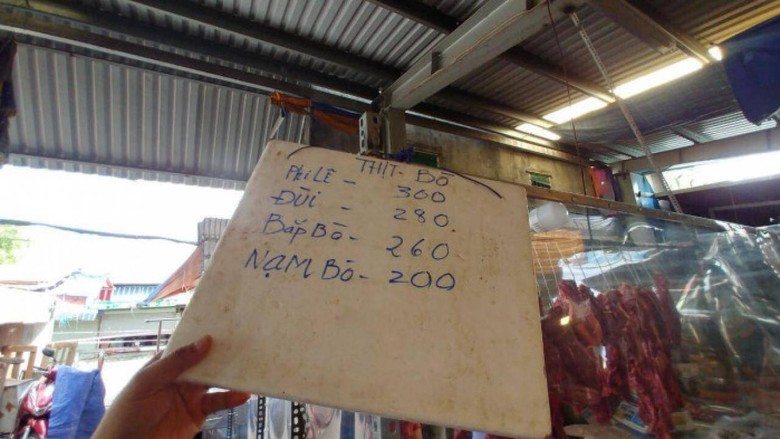 THỊT- BÒ
PHiLÊ - 300
ĐÙi - 280
BắpBò - 260
NẠM Bò - 200